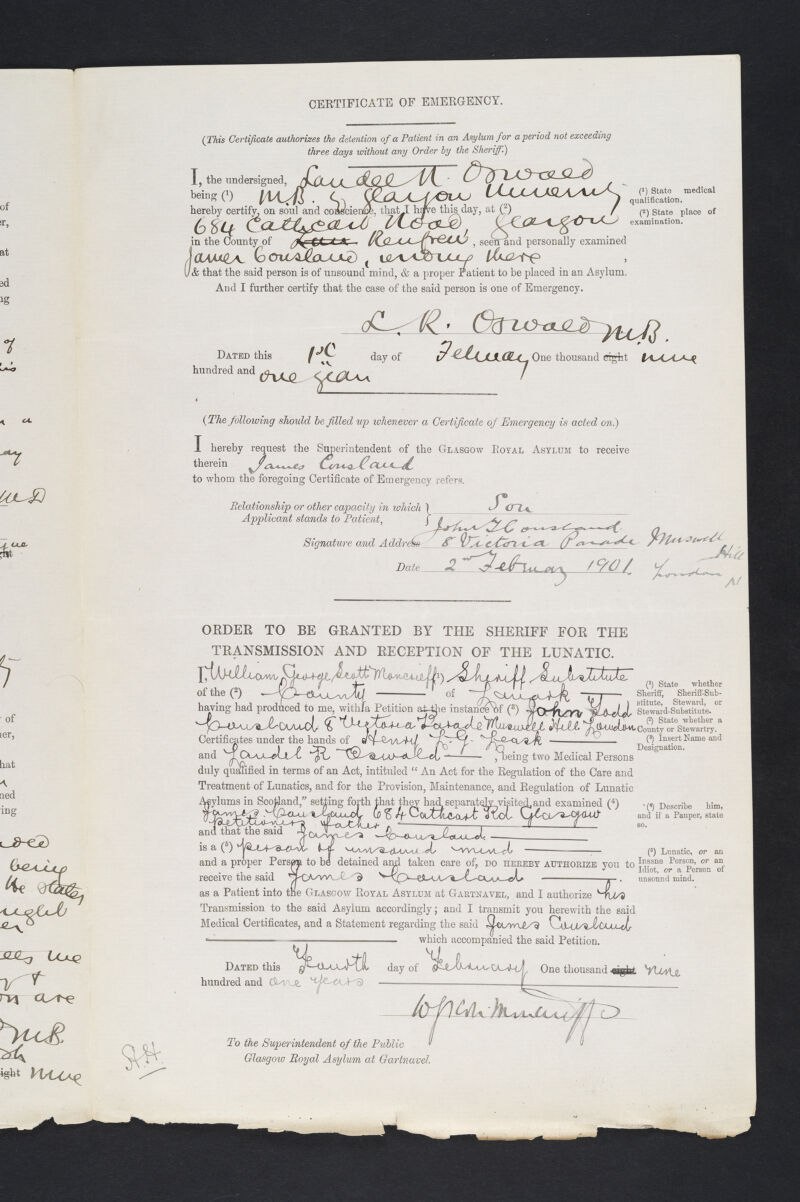 CERTIFICATE OF EMERGENCY.
(This Certificate authorizes the detention of a Patient in an Asylum for a period not exceeding
three days without any Order by the Sheriff.)
I, the undersigned, Landel R. Oswald
being (1) M.B. of Glasgow University
(1) State medical
qualification.
hereby certify, on soul and conscience, that I have this day, at (2)
(2) State place of
examination.
684 Cathcart Road, Glasgow
in the County of Renfrew, seen and personally examined
James Cousland, residing there,
& that the said person is of unsound mind, & a proper Patient to be placed in an Asylum.
And I further certify that the case of the said person is one of Emergency.
L. R. Oswald M.B.
DATED this 1st day of February One thousand eight nine
hundred and one year
(The following should be filled up whenever a Certificate of Emergency is acted on.)
I hereby request the Superintendent of the GLASGOW ROYAL ASYLUM to receive
therein James Cousland
to whom the foregoing Certificate of Emergency refers.
Relationship or other capacity in which
Applicant stands to Patient, } Son
John T Cousland
Signature and Address 8 Victoria Parade Muswell Hill
London N
Date 2nd February 1901.
ORDER TO BE GRANTED BY THE SHERIFF FOR THE
TRANSMISSION AND RECEPTION OF THE LUNATIC.
I, William George Scott Moncrieff (1) Sheriff Substitute
of the (2) County of Lanark
(1) State whether
Sheriff, Sheriff-Sub-
stitute, Steward, or
Steward-Substitute.
having had produced to me, with a Petition at the instance of (3) John Todd
Cousland 8 Victoria Parade Muswell Hill London
(2) State whether a
County or Stewartry.
(3) Insert Name and
Designation.
Certificates under the hands of Henry L. G. Leask
and Landel R Oswald, being two Medical Persons
duly qualified in terms of an Act, intituled "An Act for the Regulation of the Care and
Treatment of Lunatics, and for the Provision, Maintenance, and Regulation of Lunatic
Asylums in Scotland," setting forth that they had separately visited and examined (4)
James Cousland 684 Cathcart Rd Glasgow
(4) Describe him,
and if a Pauper, state
so.
Petitioners father
and that the said James Cousland
is a (5) person of unsound mind
(5) Lunatic, or an
Insane Person, or an
Idiot, or a Person of
unsound mind.
and a proper Person to be detained and taken care of, DO HEREBY AUTHORIZE you to
receive the said James Cousland
as a Patient into the GLASGOW ROYAL ASYLUM AT GARTNAVEL, and I authorize his
Transmission to the said Asylum accordingly; and I transmit you herewith the said
Medical Certificates, and a Statement regarding the said James Cousland
which accompanied the said Petition.
DATED this Fourth day of February One thousand eight nine
hundred and one years
To the Superintendent of the Public
Glasgow Royal Asylum at Gartnavel.